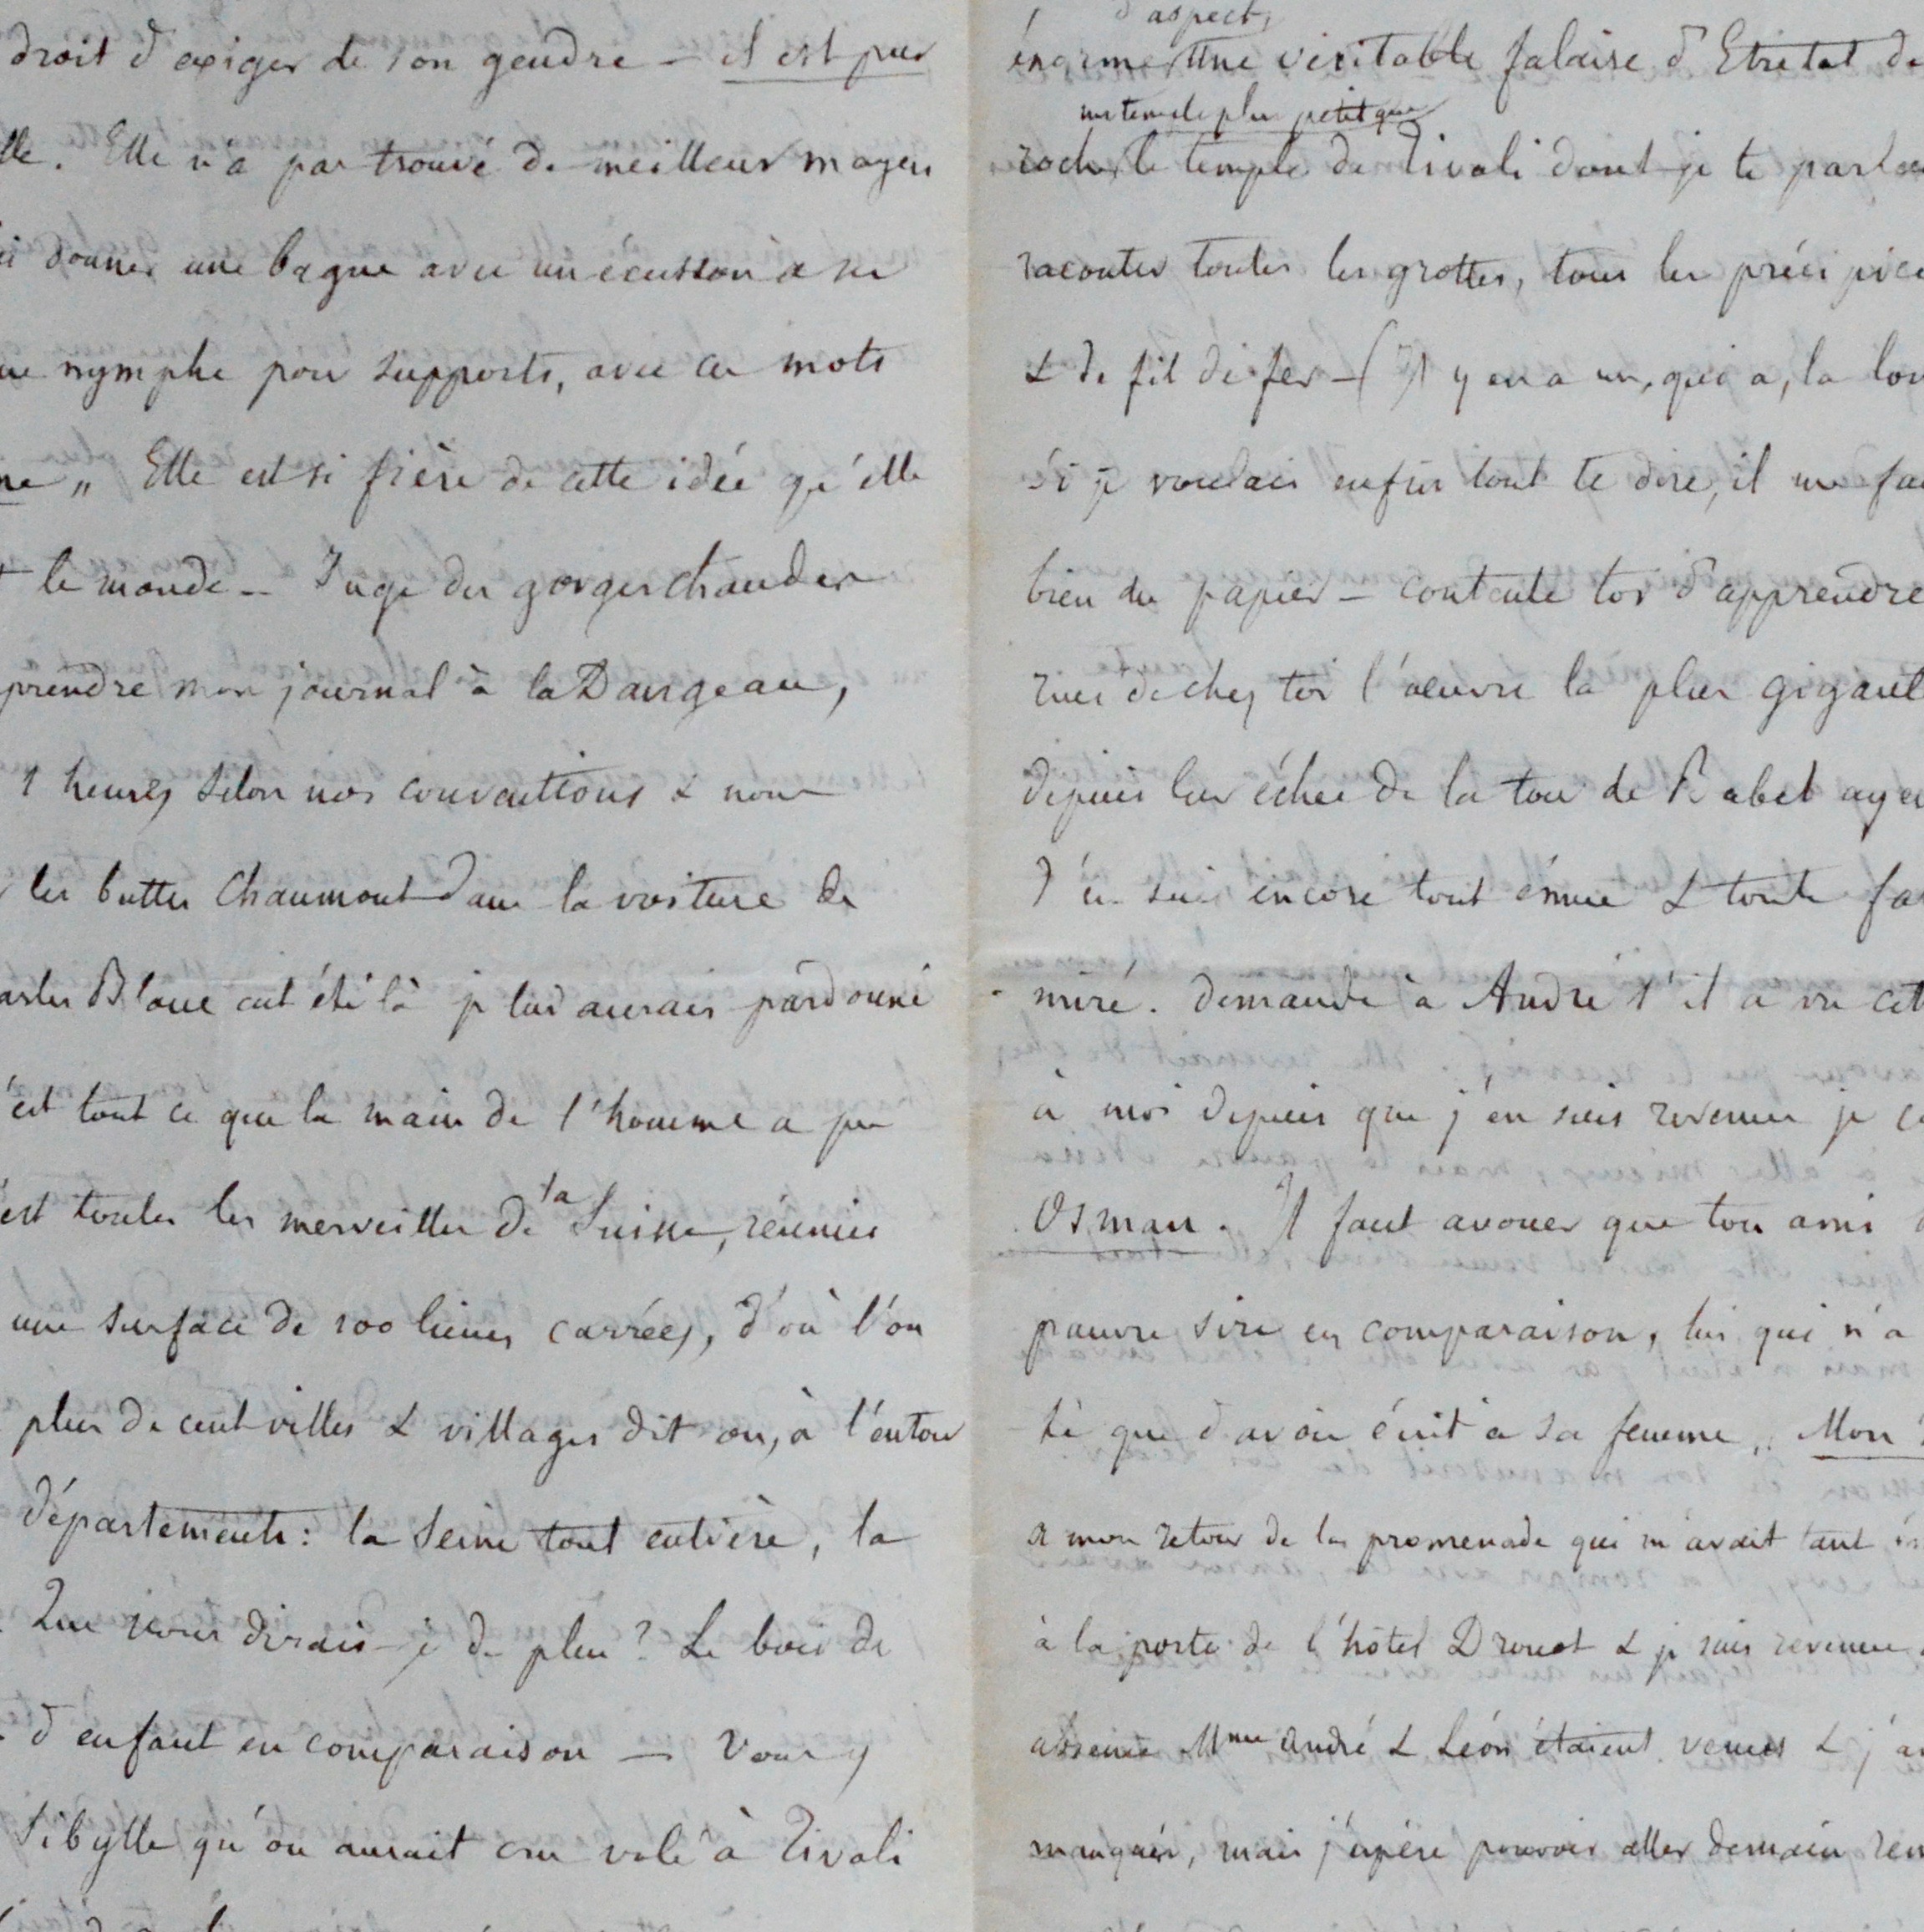 droit d'exiger de son gendre – il est pur
lle. Elle n'a pas trouvé de meilleur moyen
donner une bague avec un écusson a
nymphe pour supports, avec ces mots
ne „ Elle est si fière de cette idée qu'elle
t le monde – Juge des gorges chaudes
prendre mon journal à la Dangeau,
1 heures selon nos conventions & nous
les buttes Chaumont dans la voiture de
arles Blanc eut été là je lui aurais pardonné
'est tout ce que la main de l'homme a pu
est toutes les merveilles de la Suisse, réunies
une surface de 100 lieues carrées, d'où l'on
plus de cent villes & villages dit on, à l'entour
départements : la Seine tout entière, la
Que vous dirais-je de plus ? Le bois de
d'enfant en comparaison – Vous y
Sibylle qu'on aurait cru volé à Tivoli
d'aspect,
énorme, une véritable falaise d'Etretat de
un temple plus petit que
roche, le temple de Tivoli dont je te parlais
raconter toutes les grottes, tous les préci pice
& de fil de fer – (Il y en a un, qui a, la lon
si je voulais enfin tout te dire, il me fau
bien du papier – contente toi d'apprendre
rues de chez toi l'œuvre la plus gigant
depuis leur échec de la tour de Babel aye
J'en suis encore tout émue & toute fa
miré. demande à André s'il a vu cet
à moi depuis que j'en suis revenue je c
Osman. Il faut avouer que ton ami
pauvre sire en comparaison, lui qui n'a
té que d'avoir écrit à sa femme „ Mon
A mon retour de la promenade qui m'avait tant é
à la porte de l'hôtel Drouot & je suis revenue
absence Mme André & Léon étaient venus & j'a
manqués, mais j'espère pouvoir aller demain ren